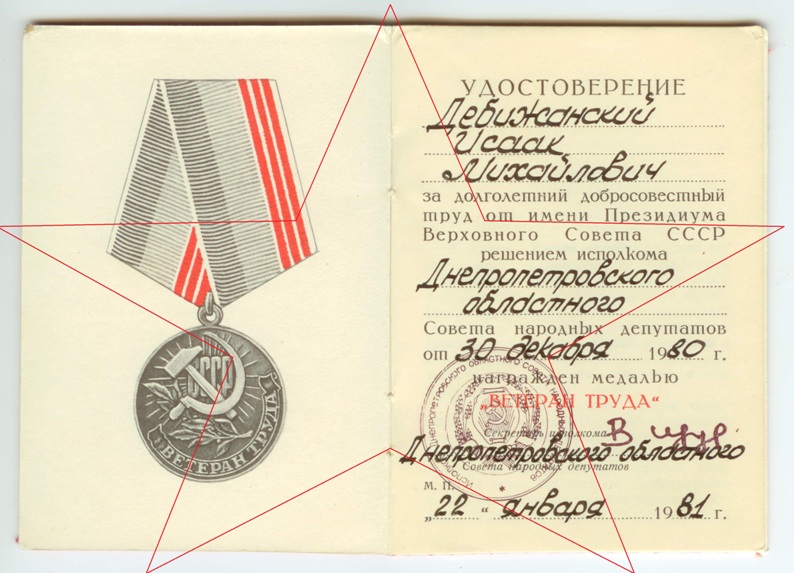 СССР
ВЕТЕРАН ТРУДА
УДОСТОВЕРЕНИЕ
Дебижанский
Исаак
Михайлович
за долголетний добросовестный
труд от имени Президиума
Верховного Совета СССР
решением исполкома
Днепропетровского
областного
Совета народных депутатов
от 30 декабря 1980 г.
награжден медалью
„ВЕТЕРАН ТРУДА“
Секретарь исполкома
Днепропетровского областного
Совета народных депутатов
М. П.
„22“ января 1981 г.